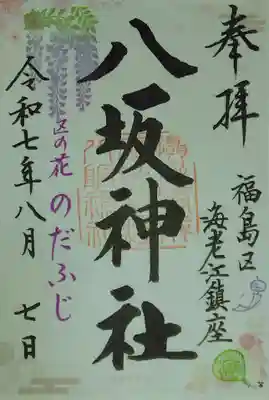 奉拝
福島区
海老江鎮座
八坂神社
区の花
のだふじ
令和七年八月七日